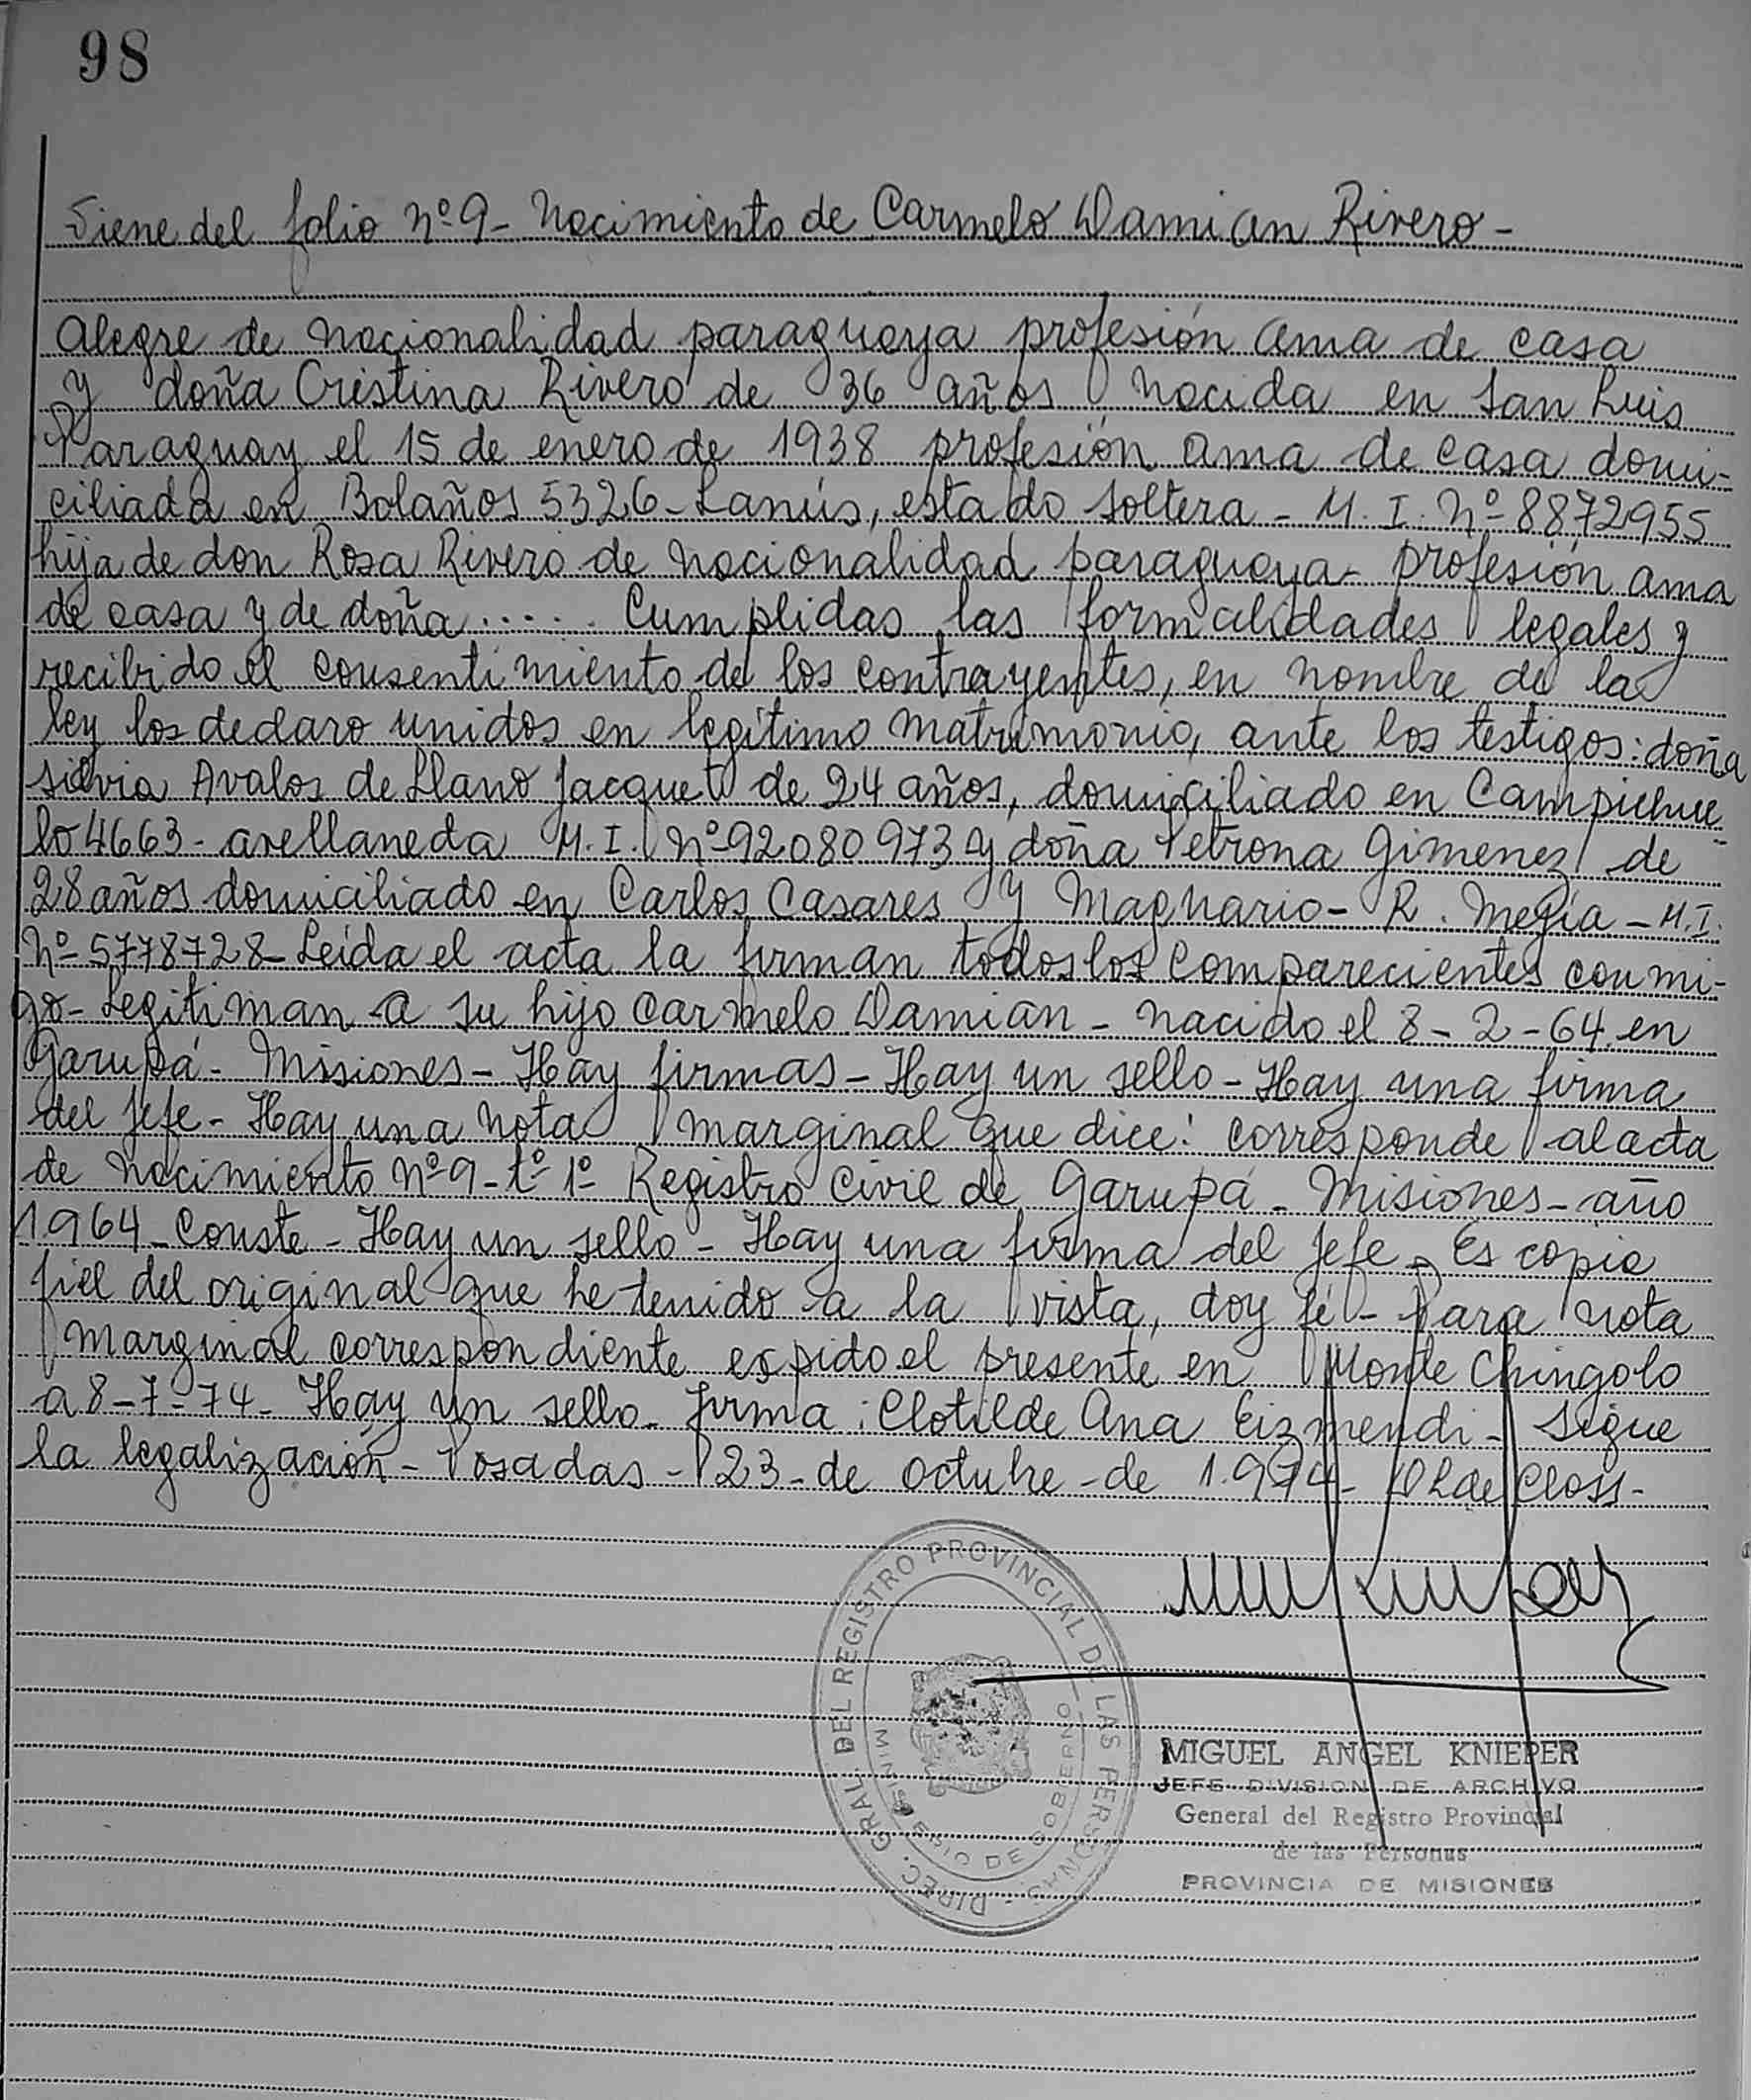 98
Viene del folio Nº 9- Nacimiento de Carmelo Damian Rivero-
Alegre de nacionalidad paraguaya profesión ama de casa
y doña Cristina Rivero de 36 años nacida en San Luis
Paraguay el 15 de enero de 1938 profesión ama de casa domi-
ciliada en Bolaños 5326-Lanús, estado soltera - M. I. Nº 8872955
hija de don Rosa Rivero de nacionalidad paraguaya- profesión ama
de casa y de doña...... Cumplidas las formalidades legales y
recibido el consentimiento de los contrayentes, en nombre de la
ley los declaro unidos en legítimo matrimonio, ante los testigos: doña
Silvia Avalos de Llano Jacquet de 24 años, domiciliado en Campichue
lo 4663- avellaneda M. I. Nº 92080973 y doña Petrona Gimenez de
28 años domiciliado en Carlos Casares y Magnario- R. Megía - M.I.
Nº 5778728- Leída el acta la firman todos los comparecientes conmi-
go- Legitiman a su hijo Carmelo Damian - nacido el 8-2-64 en
Garupá- Misiones- Hay firmas- Hay un sello- Hay una firma
del Jefe- Hay una nota marginal que dice: corresponde al acta
de nacimiento Nº 9- tº 1º Registro Civil de Garupá - Misiones- año
1964- Conste- Hay un sello- Hay una firma del Jefe- Es copia
fiel del original que he tenido a la vista, doy fé- Para nota
marginal correspondiente expido el presente en Monte Chingolo
a 8-7-74- Hay un sello- firma: Clotilde Ana Eizmendi- Sigue
la legalización- Posadas- 23- de octubre- de 1.974- de Closs-
DIREC. GRAL. DEL REGISTRO PROVINCIAL DE LAS PERSONAS -
MINISTERIO DE GOBIERNO
MIGUEL ANGEL KNIEPER
JEFE DIVISION DE ARCHIVO
General del Registro Provincial
de las Personas
PROVINCIA DE MISIONES